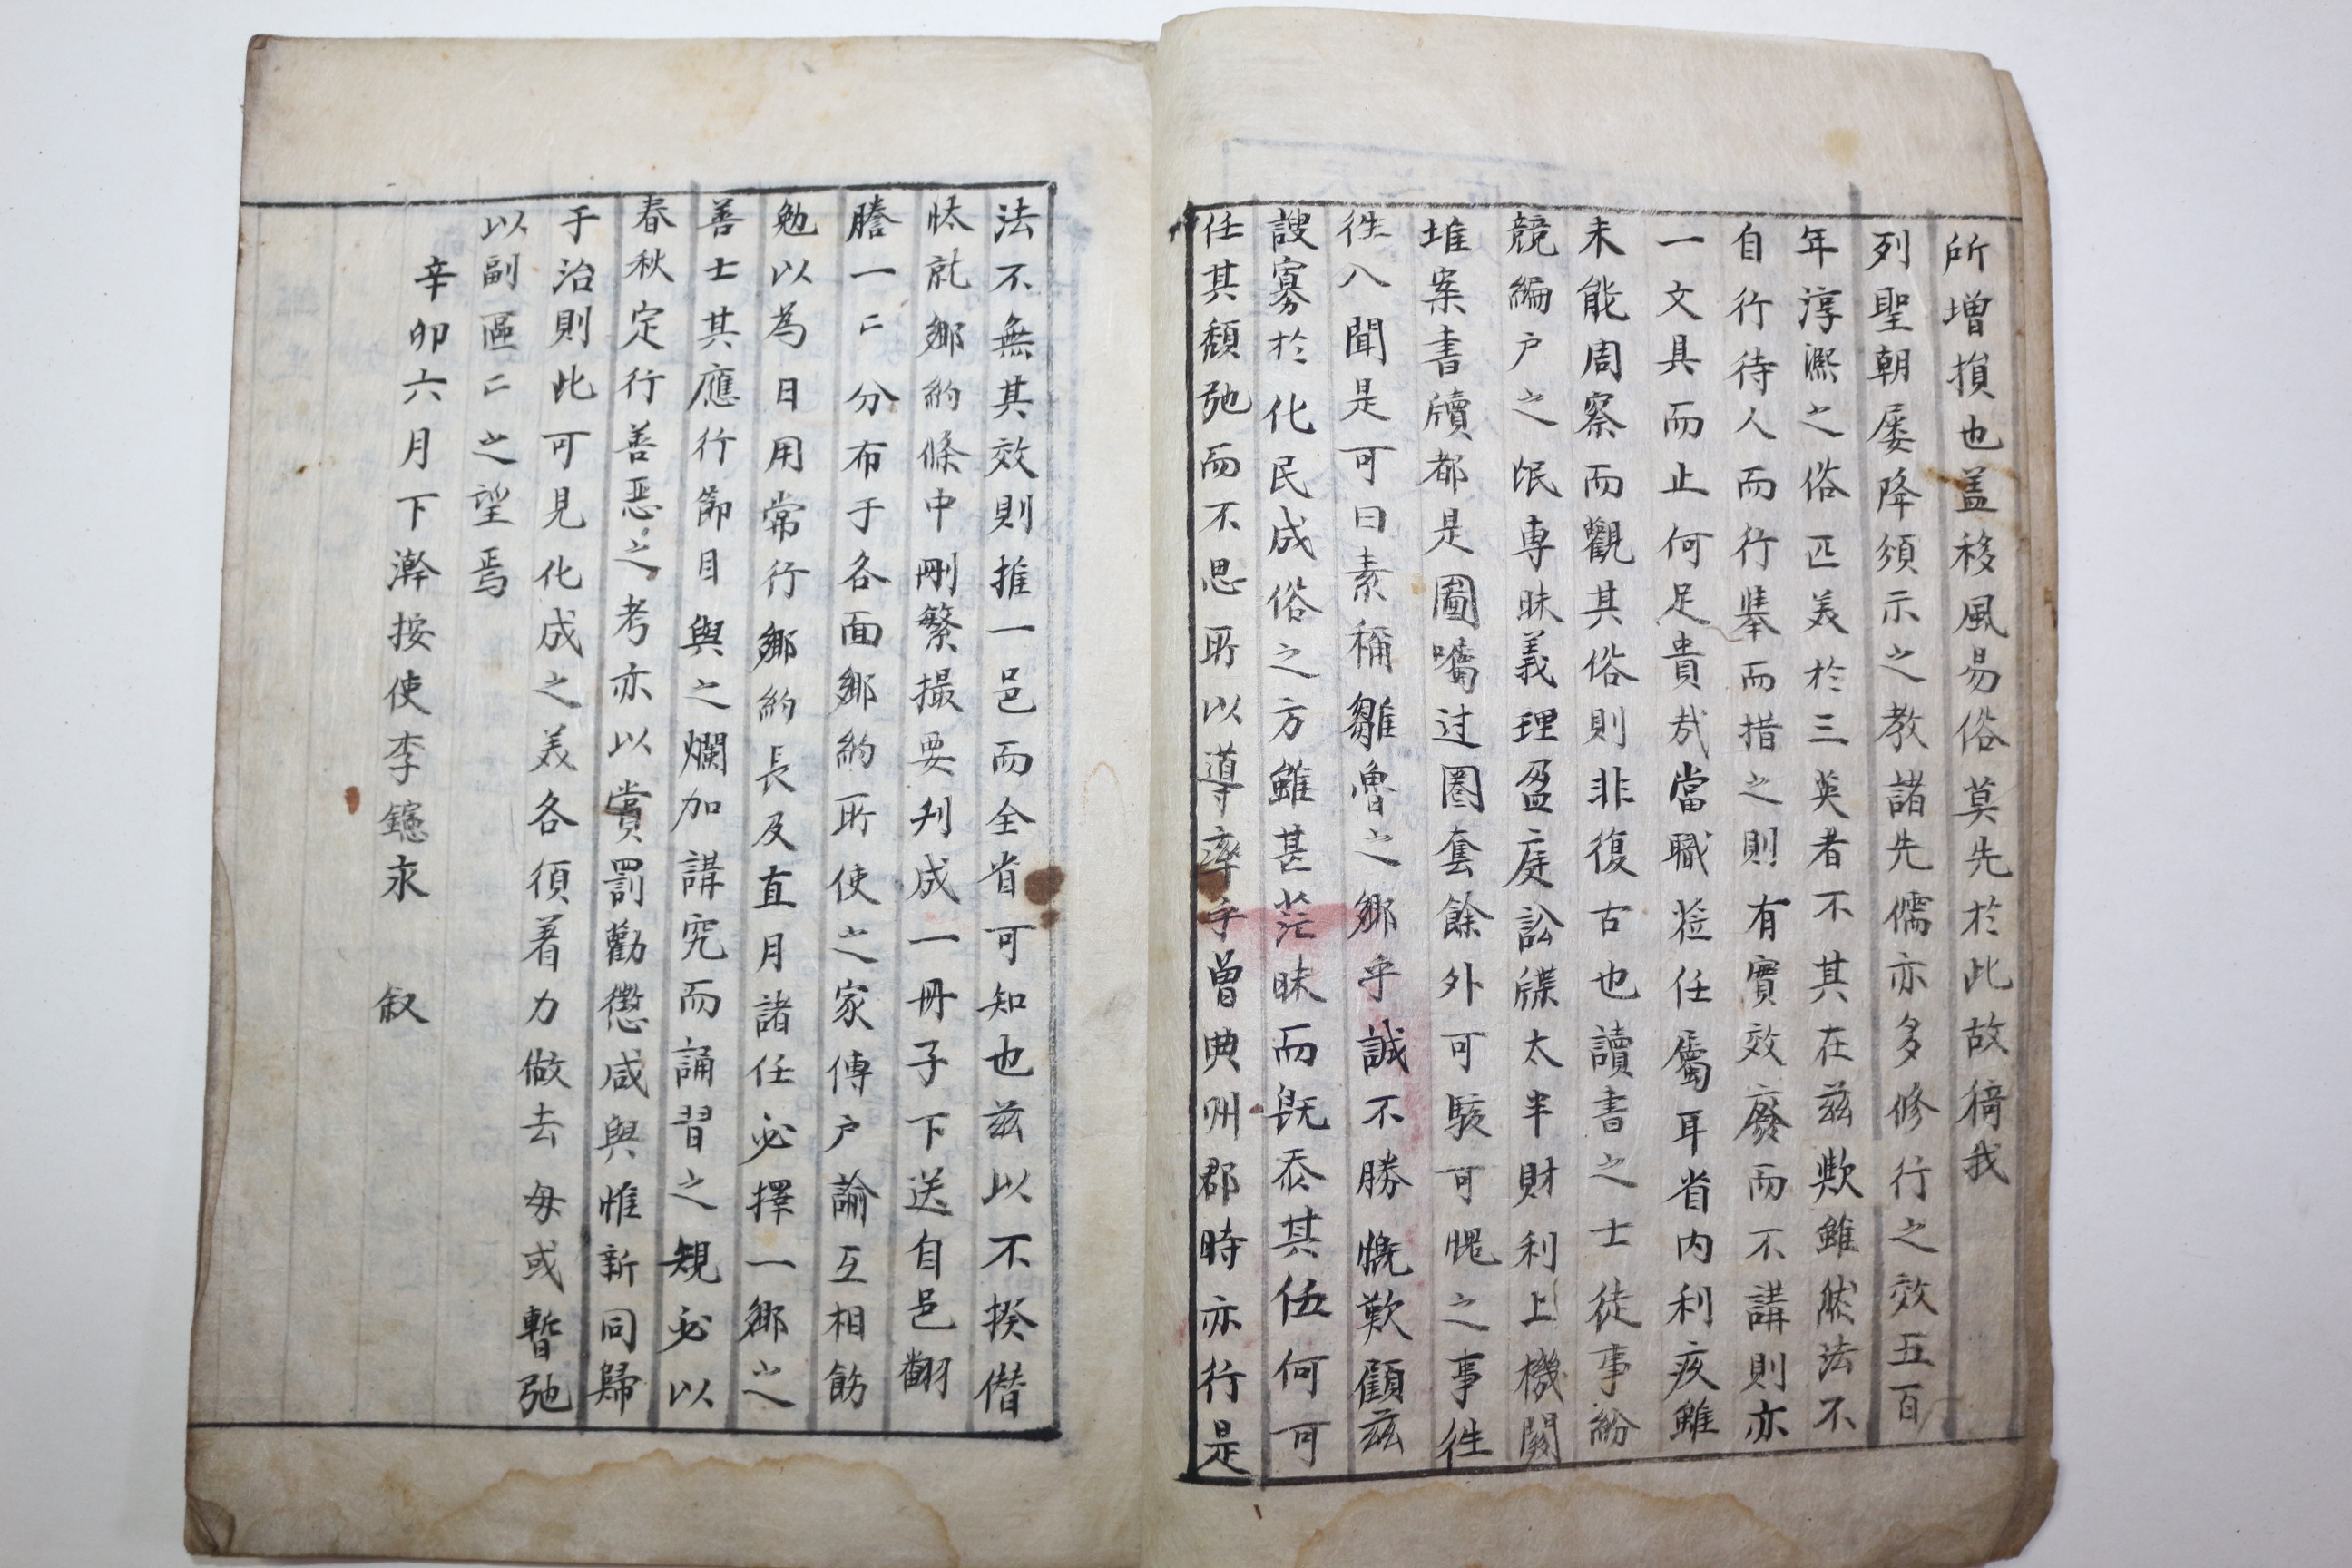 所增損也盖移風易俗莫先於此故稽我
列聖朝屡降須示之教諸先儒亦多修行之效五百
年淳熙之俗匹美於三英者不其在茲歟雖然法不
自行待人而行擧而措之則有實效廢而不講則亦
一文具而止何足貴哉當職莅任屬耳省內利疚雖
未能周察而觀其俗則非復古也讀書之士徒事紛
競編户之氓専昧義理盈庭訟牒太半財利上機関
堆案書牘都是圖囑过圏套餘外可駭可愧之事徃
徃入聞是可曰素稱鄒魯之鄉乎誠不勝慨歎顧茲
謏寡於化民成俗之方雖甚茫昧而旣忝其伍何可
任其頹弛而不思所以導率乎曽典州郡時亦行是
法不無其效則推一邑而全省可知也茲以不揆僣
怢就鄉約條中刪繁撮要刋成一冊子下送自邑翻
謄一二分布于各面鄉約所使之家傳户諭互相飭
勉以為日用常行鄉約長及直月諸任必擇一鄉之
善士其應行節目與之爛加講究而誦習之規必以
春秋定行善惡之考亦以賞罰勸懲咸與惟新同歸
于治則此可見化成之美各須着力做去毎或暫弛
以副區二之望焉
辛卯六月下澣按使李𨯶永 叙